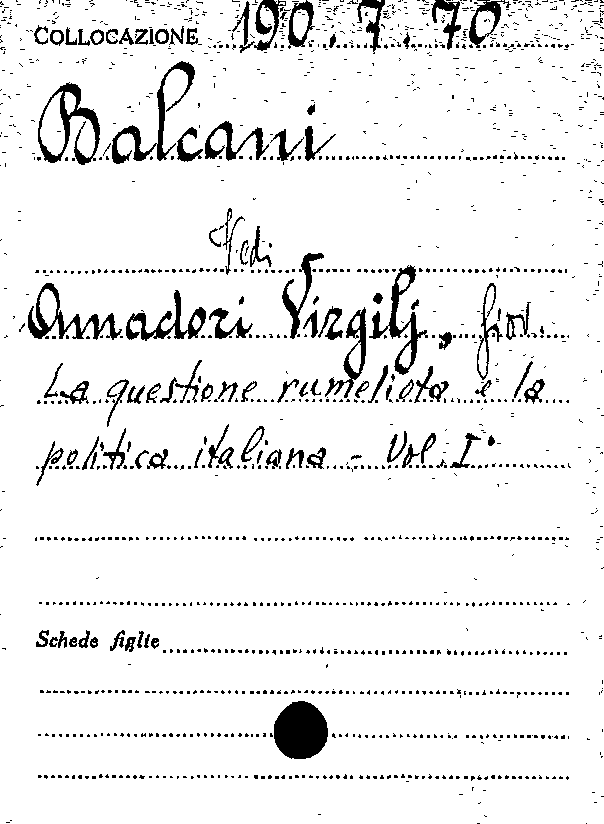 COLLOCAZIONE 190.7.70
Balcani
Vedi
Amadori Virgilj, Giov.
La questione rumeliota e la
politica italiana - Vol. I°
Schede figlie